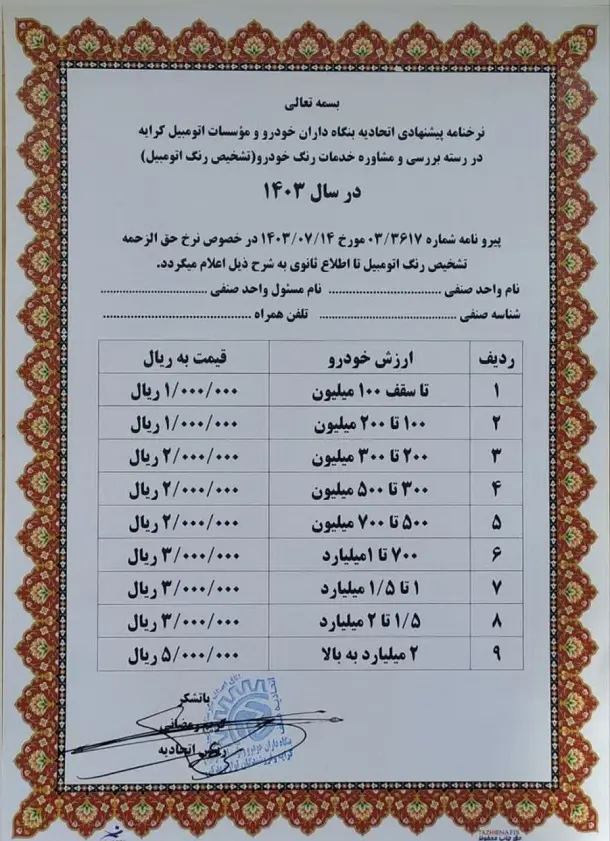 بسمه تعالی
نرخنامه پیشنهادی اتحادیه بنگاه داران خودرو و مؤسسات اتومبیل کرایه
در رسته بررسی و مشاوره خدمات رنگ خودرو(تشخیص رنگ اتومبیل)
در سال ۱۴۰۳
پیرو نامه شماره ۰۳/۳۶۱۷ مورخ ۱۴۰۳/۰۷/۱۴ در خصوص نرخ حق الزحمه
تشخیص رنگ اتومبیل تا اطلاع ثانوی به شرح ذیل اعلام میگردد.
نام واحد صنفی ................................ نام مسئول واحد صنفی ................................
شناسه صنفی ........................................ تلفن همراه ............................................
ردیف ارزش خودرو قیمت به ریال
۱ تا سقف ۱۰۰ میلیون ۱/۰۰۰/۰۰۰ ریال
۲ ۱۰۰ تا ۲۰۰ میلیون ۱/۰۰۰/۰۰۰ ریال
۳ ۲۰۰ تا ۳۰۰ میلیون ۲/۰۰۰/۰۰۰ ریال
۴ ۳۰۰ تا ۵۰۰ میلیون ۲/۰۰۰/۰۰۰ ریال
۵ ۵۰۰ تا ۷۰۰ میلیون ۲/۰۰۰/۰۰۰ ریال
۶ ۷۰۰ تا ۱میلیارد ۳/۰۰۰/۰۰۰ ریال
۷ ۱ تا ۱/۵ میلیارد ۳/۰۰۰/۰۰۰ ریال
۸ ۱/۵ تا ۲ میلیارد ۳/۰۰۰/۰۰۰ ریال
۹ ۲ میلیارد به بالا ۵/۰۰۰/۰۰۰ ریال
باتشکر
کریم رمضانی
رئیس اتحادیه
بنگاه داران خودرو
TAZHIBNAFIS
حق چاپ محفوظ